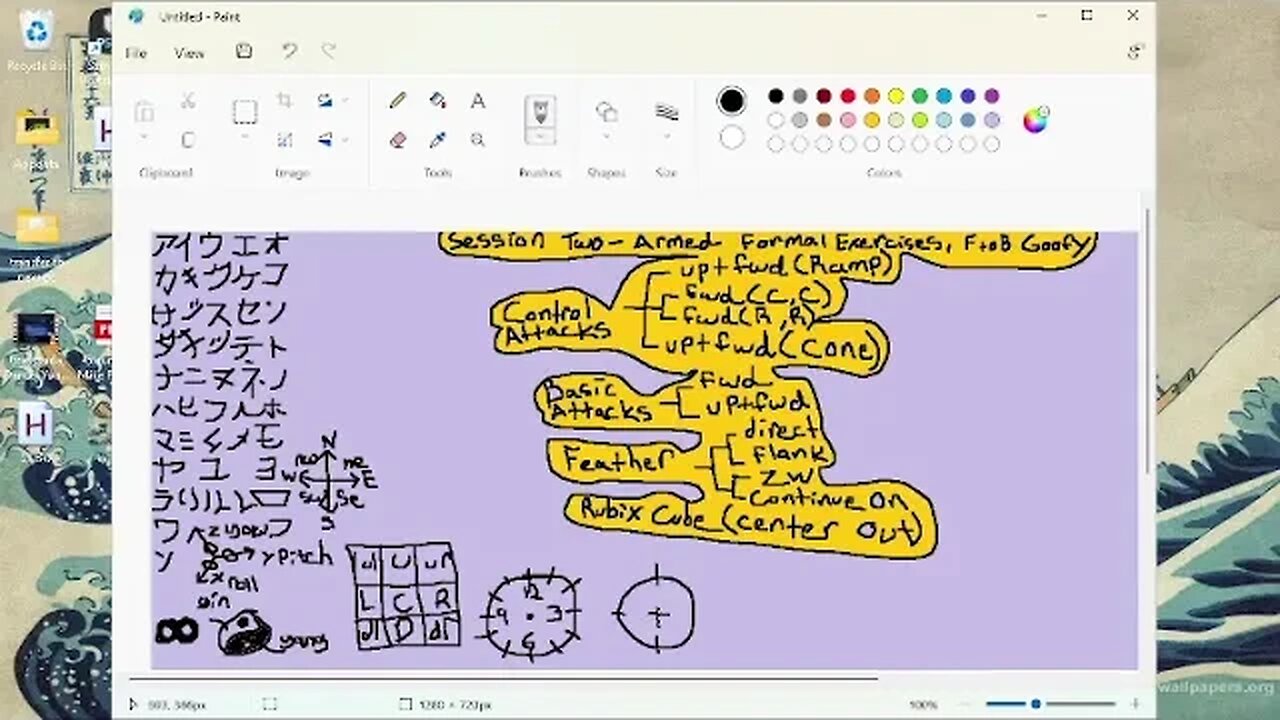 Untitled - Paint
File View
Clipboard Image Tools Brushes Shapes Size Colors
Recycle
アイウエオ
カキクケコ
サシスセソ
タチツテト
ナニヌネノ
ハヒフヘホ
マミムメモ
ヤユヨ
ラリルレロ
ワ ヲ
ン
Session Two - Armed Formal Exercises, F to B Goofy
Control Attacks
up + fwd (Ramp)
fwd (C, C)
fwd (R, R)
up + fwd (Cone)
Basic Attacks
fwd
up + fwd
Feather
direct
flank
ZW
Continue On
Rubix Cube (center Out)
N
ne
W E
sw se
S
z yaw
y pitch
x roll
yin
yang
ul U ur
L C R
dl D dr
12
9 3
6
1280 × 720px
100%
wallpapers.org